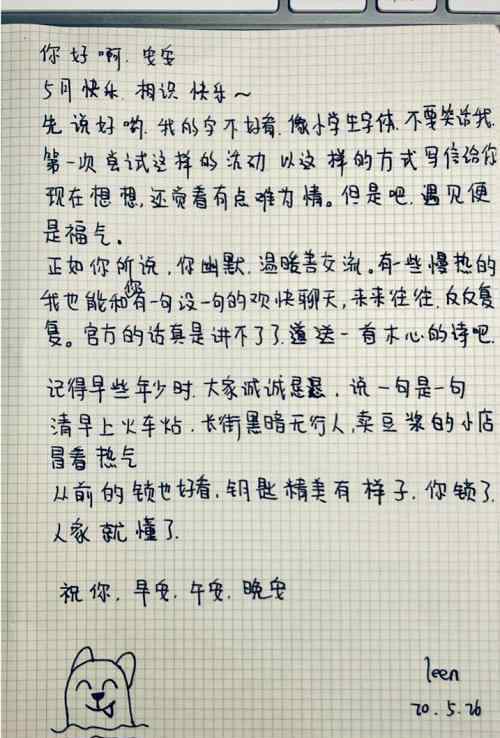 你好啊.安安
5月快乐.相识快乐～
先说好哟.我的字不好看.像小学生字体.不要笑话我.
第一次尝试这样的活动 以这样的方式写信给你
现在想想,还觉着有点难为情。但是吧.遇见便
是福气。
正如你所说,你幽默.温暖善交流。有一些慢热的
我也能和你有一句没一句的欢快聊天,来来往往.反反复
复。官方的话真是讲不了了.送一首木心的诗吧.
记得早些年少时.大家诚诚恳恳,说一句是一句
清早上火车站.长街黑暗无行人,卖豆浆的小店
冒着热气
从前的锁也好看,钥匙精美有样子.你锁了.
人家就懂了.
祝你.早安.午安.晚安
leen
20.5.26